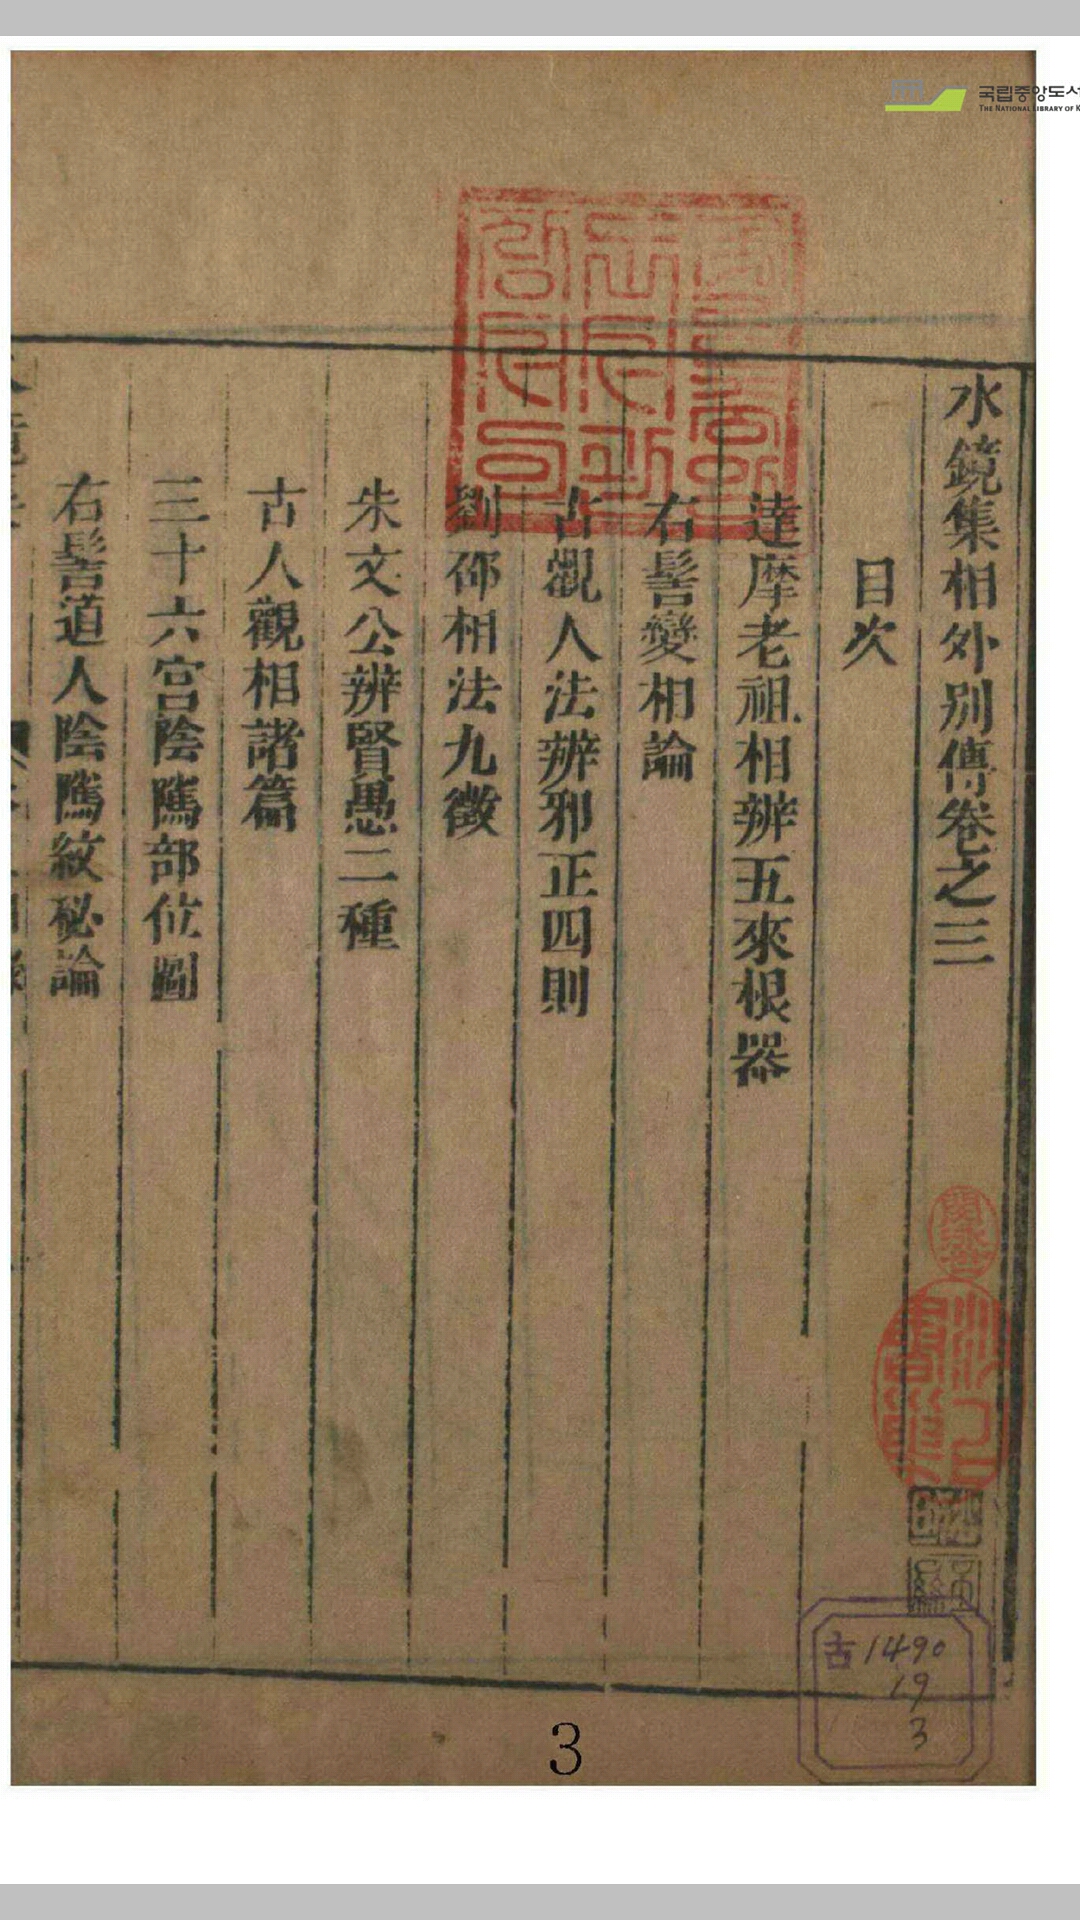 水鏡集相外別傳卷之三
目次
達摩老祖相辨五來根器
右髻變相論
古觀人法辨邪正四則
劉邵相法九徵
朱文公辨賢愚二種
古人觀相諸篇
三十六宮陰隲部位圖
右髻道人陰隲紋秘論
국립중앙도서
THE NATIONAL LIBRARY OF K
古1490
19
3
3